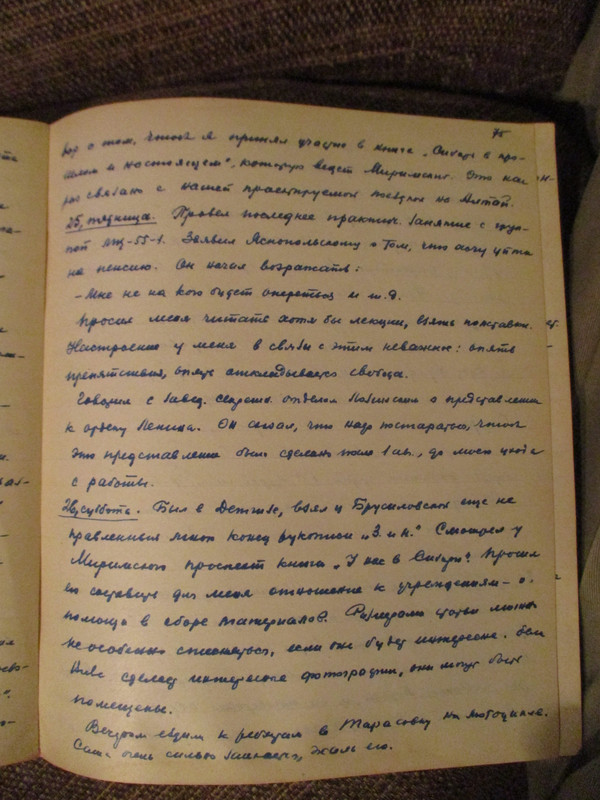 75
вор о том, чтобы я принял участие в книге „Сибирь в прo-
шлом и настоящем", которую ведет Миримский. Это как
раз связано с нашей проектируемой поездкой на Алтай.
25, пятница. Провел последнее практич. занятие с груп-
пой -55-1. Заявил Яснопольскому о том, что хочу уйти
на пенсию. Он начал возражать:
– Мне не на кого будет опереться и т.д.
Просил меня читать хотя бы лекции, взять полставки.
Настроение у меня в связи с этим неважное: опять
препятствия, опять откладывается свобода.
Говорил с завед. секретн. отделом о представлении
к ордену Ленина. Он сказал, что надо постараться, чтобы
это представление было сделано до моего ухода
с работы.
26, суббота. Был в Детгизе, взял у Брусиловской еще не
правленный мною конец рукописи „З. и н." Смотрел у
Миримского проспект книги „У нас в Сибири". Просил
его составить для меня отношение к учреждениям – о
помощи в сборе материалов. Размерами статьи можно
не особенно стесняться, если она будет интересна. Если
сделает интересные фотографии, они могут быть
помещены.
Вечером ездили к ребятам в Тарасовку на мотоцикле.
Саша очень сильно заикается, жаль его.